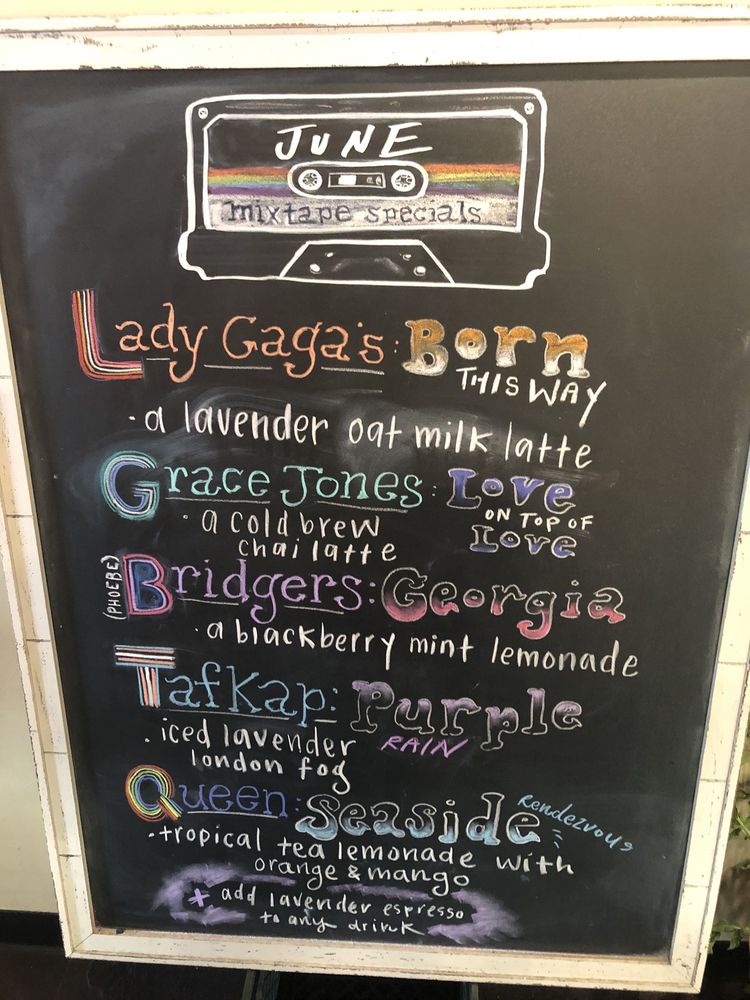 JUNE
mixtape specials
Lady Gaga's: Born
THIS WAY
· a lavender oat milk latte
Grace Jones: Love
ON TOP OF
Love
· a cold brew
chai latte
(PHOEBE)
Bridgers: Georgia
· a blackberry mint lemonade
TafKap: Purple
RAIN
· iced lavender
london fog
Queen: Seaside
Rendezvous
· tropical tea lemonade with
orange & mango
+ add lavender espresso
to any drink